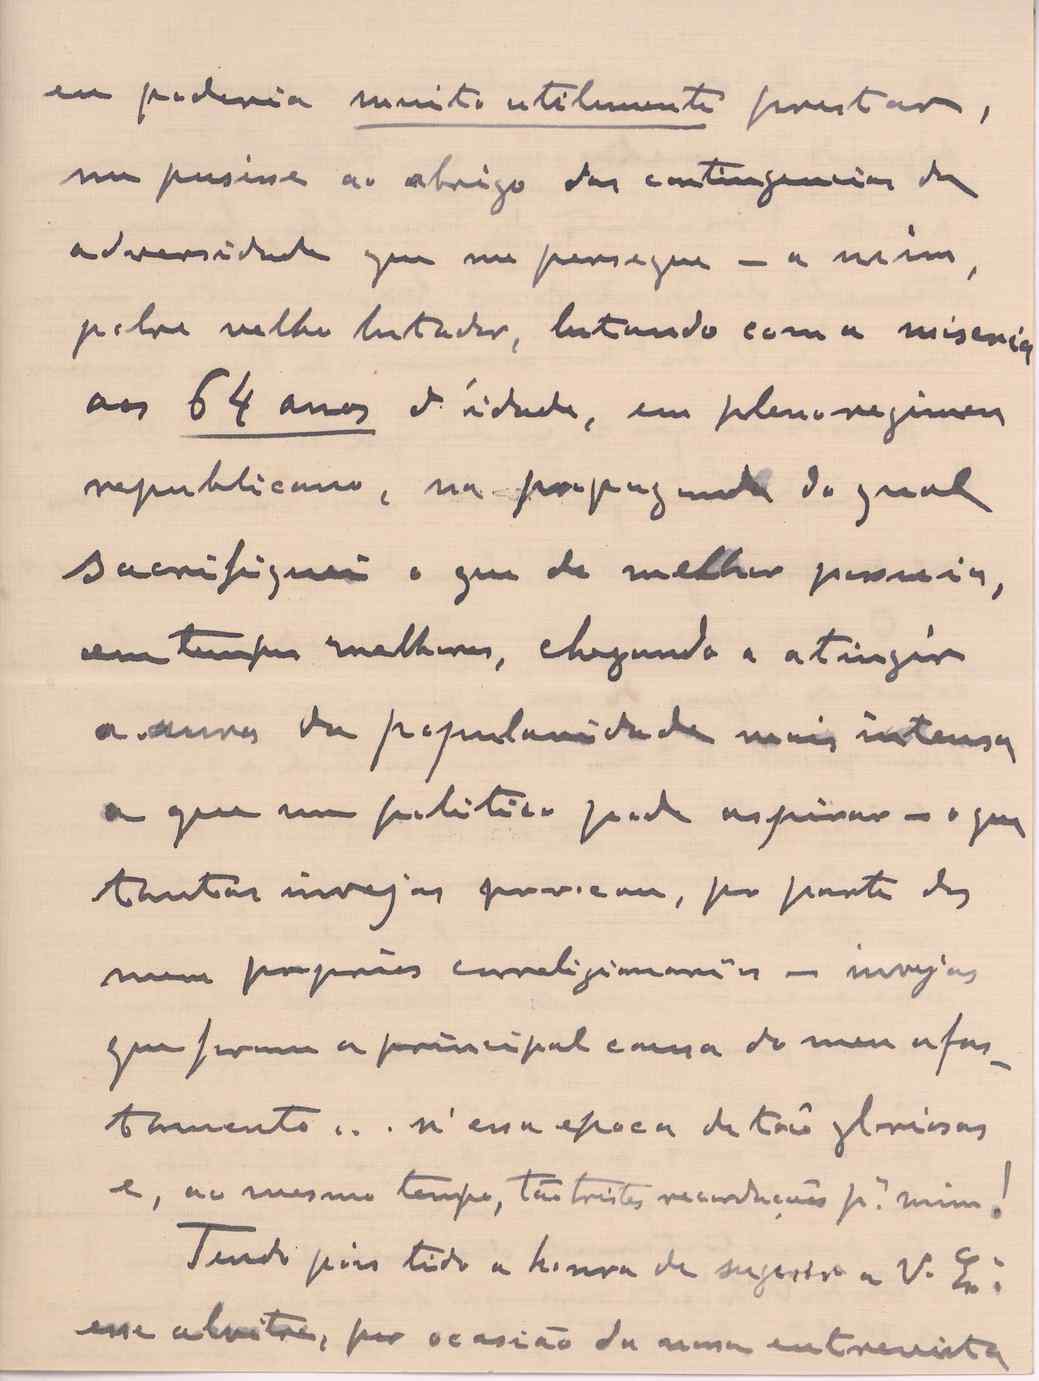 eu poderia muito utilmente prestar,
me pusesse ao abrigo das contingencias da
adversidade que me persegue — a mim,
pobre velho lutador, lutando com a miseria
aos 64 anos d'idade, em pleno regimen
republicano, na propaganda do qual
sacrifiquei o que de melhor possuia,
em tempos melhores, chegando a atingir
a aura da popularidade mais intensa
a que um politico pode aspirar — o que
tantas invejas provocou, por parte dos
meus proprios correligionarios — invejas
que foram a principal causa do meu afas-
tamento ... n'essa epoca de tão gloriosas
e, ao mesmo tempo, tão tristes recordações p.ª mim!
Tendo pois tido a honra de sugerir a V. Ex.ª
esse alvitre, por ocasião da nossa entrevista